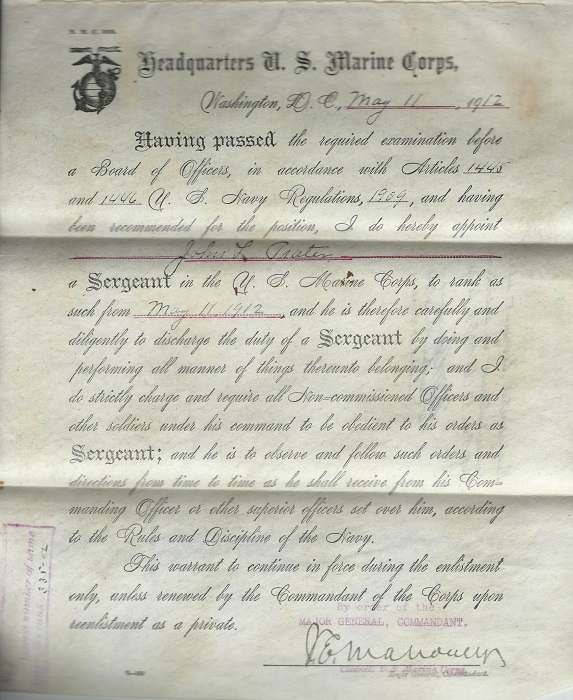 Headquarters U. S. Marine Corps,
Washington, D. C., May 11, 1912
Having passed the required examination before
a Board of Officers, in accordance with Articles 1445
and 1446 U. S. Navy Regulations, 1909, and having
been recommended for the position, I do hereby appoint
John L. Prater
a Sergeant in the U. S. Marine Corps, to rank as
such from May 11, 1912, and he is therefore carefully and
diligently to discharge the duty of a Sergeant by doing and
performing all manner of things thereunto belonging; and I
do strictly charge and require all Non-commissioned Officers and
other soldiers under his command to be obedient to his orders as
Sergeant; and he is to observe and follow such orders and
directions from time to time as he shall receive from his Com-
manding Officer or other superior officers set over him, according
to the Rules and Discipline of the Navy.
This warrant to continue in force during the enlistment
only, unless renewed by the Commandant of the Corps upon
reenlistment as a private.
By order of the
MAJOR GENERAL, COMMANDANT.
Colonel, U. S. Marine Corps
Major General, Commandant.
number of same